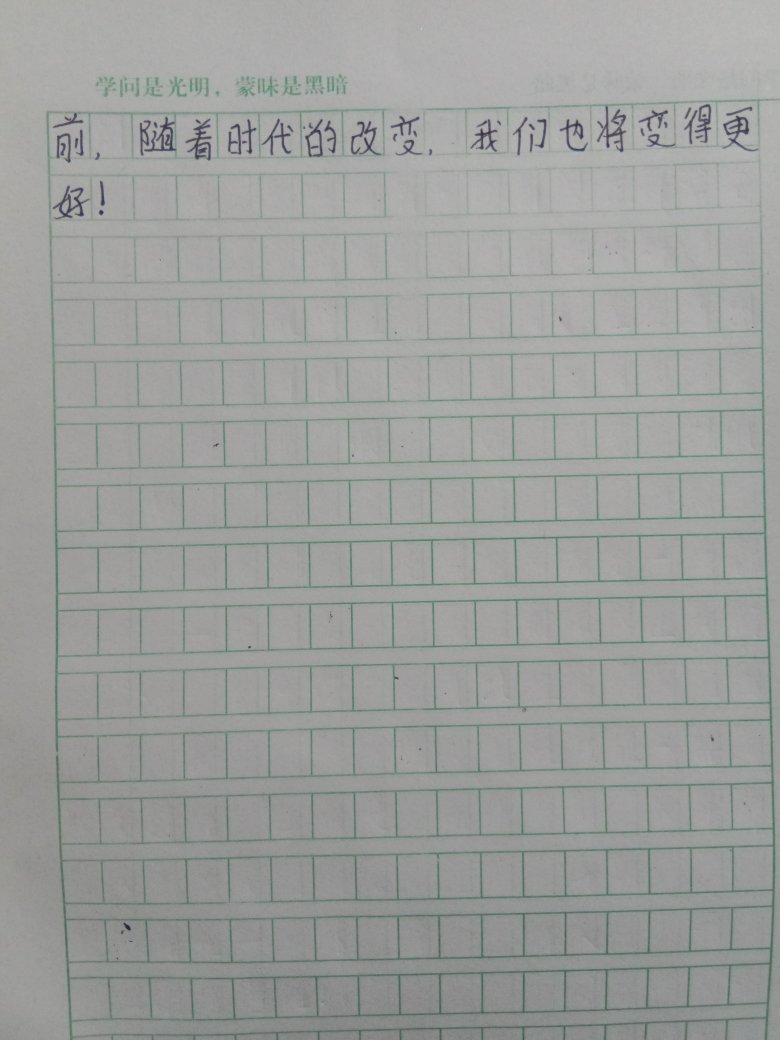 学问是光明，蒙昧是黑暗
前，随着时代的改变，我们也将变得更
好！